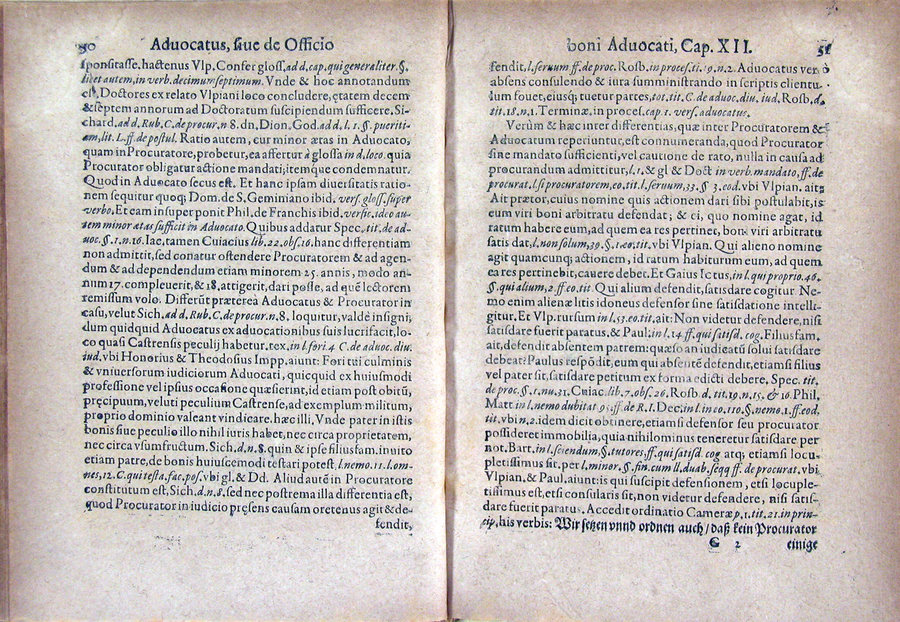 50 Advocatus, siue de Officio
sponsitasse. hactenus Vlp. Confer gloss. ad d. cap. qui generaliter. §.
libet autem, in verb. decimum septimum. Vnde & hoc annotandum
est, Doctores ex relato Vlpiani loco concludere, ętatem decem
& septem annorum ad Doctoratum suscipiendum sufficere. Si-
chard. ad d. Rub. C. de procur. n 8. dn, Dion. God. ad d. l. 1. §. pueriti-
am, lit. L. ff. de postul. Ratio autem, cur minor ætas in Aduocato,
quam in Procuratore, probetur, ea affertur á glossa in d. loco, quia
Procurator obligatur actione mandati; itemque condemnatur.
Quod in Aduocato secus est. Et hanc ipsam diuersitatis ratio-
nem sequitur quoq; Dom. de S. Geminiano ibid. vers. gloss. super
verbo. Et eam insuper ponit Phil. de Franchis ibid. versic. ideo au-
tem minor ætas sufficit in Aduocato. Quibus addatur Spec. tit. de ad-
uoc. §. 1. n. 16. Iac. tamen Cuiacius lib. 22. obs. 16. hanc differentiam
non admittit, sed conatur ostendere Procuratorem & ad agen-
dum & ad dependendum etiam minorem 25. annis, modo an-
num 17. compleuerit, & 18. attigerit, dari posse, ad quē lectorem
remissum volo. Differūt prætereà Aduocatus & Procurator in
casu, velut Sich. ad d. Rub. C. de procur. n 8. loquitur, valdè insigni;
dum quidquid Aduocatus ex aduocationibus suis lucrifacit, lo-
co quasi Castrensis peculij habetur. tex. in l. fori 4. C. de aduoc. diu.
iud. vbi Honorius & Theodosius Impp. aiunt: Fori tui culminis
& vniuersorum iudiciorum Aduocati, quicquid ex huiusmodi
professione vel ipsius occasione quæsierint, id etiam post obitũ,
pręcipuum, veluti peculium Castrense, ad exemplum militum,
proprio dominio valeant vindicare. hæc illi, Vnde pater in istis
bonis siue peculio illo nihil iuris habet, nec circa proprietatem,
nec circa vsumfructum. Sich. d. n. 8. quin & ipse filiusfam. inuito
etiam patre, de bonis huiuscemodi testari potest. l. nemo. 11. l. om-
nes, 12. C. qui testa. fac. pos. vbi gl. & Dd. Aliud autē in Procuratore
constitutum est, Sich. d. n. 8. sed nec postrema illa differentia est,
quod Procurator in iudicio pręsens causam oretenus agit & de-
fendit,
boni Aduocati, Cap. XII. 51
fendit, l. seruum ff. de proc. Rosb. in proces. ti. 19. n. 2. Aduocatus verò
absens consulendo & iura summistrando in scriptis clientu-
lum fouet, eiusq; tuetur partes, tot. tit. C. de aduoc. diu. iud. Rosb. d.
tit. 18. n. 1. Terminæ, in proces. cap. 1. vers. aduocatus.
Verùm & hæc inter differentias, quæ inter Procuratorem &
Aduocatum reperiuntur, est connumeranda, quod Procurator
sine mandato sufficienti, vel cautione de rato, nulla in causa ad
procurandum admittitur, l. 1. & gl & Doct in verb. mandato, ff. de
procurat. l. si procuratorem, eo. tit. l. seruum, 33. § 3. eod. vbi Vlpian. ait:
Ait prætor, cuius nomine quis actionem dari sibi postulabit, is
eum viri boni arbitratu defendat; & ei, quo nomine agat, id
ratum habere eum, ad quem ea res pertinet, boni viri arbitratu
satis dat, l. non solum, 39. §. 1. eo. tit. vbi Vlpian. Qui alieno nomine
agit quamcunq; actionem, id ratum habiturum eum, ad quem
ea res pertinebit, cauere debet. Et Gaius Ictus, in l. qui proprio. 46.
§. qui alium, 2 ff. eo tit. Qui alium defendit, satisdare cogitur Ne-
mo enim alienæ litis idoneus defensor sine satisdatione intelli-
gitur. Et Vlp. rursum in l. 53. eo. tit. ait: Non videtur defendere, nisi
satisdare fuerit paratus, & Paul. in l. 14 ff. qui satisd. cog. Filiusfam.
ait, defendit absentem patrem: quæso an iudicatū solui satisdare
debeat? Paulus respōdit, eum qui absentē defendit, etiamsi filius
vel pater sit, satisdare petitum ex forma edicti debere, Spec. tit.
de proc. §. 1. nu. 31. Cuiac. lib. 7. obs. 26. Rosb. d. tit. 19. n. 15. & 16 Phil.
Matt in l. nemo dubitat 95. ff. de R. I. Dec. in l. in eo. 110. §. nemo. 1. ff. eod.
tit. vbi n. 2. idem dicit obtinere, etiamsi defensor seu procurator
possideret immobilia, quia nihilominus teneretur satisdare per
not. Bart. in l. sciendum, §. tutores, ff. qui satisd. cog atq; etiamsi locu-
pletissimus sit. per l. minor. §. fin. cum ll. duab. seqq ff. de procurat. vbi
Vlpian. & Paul. aiunt: is qui suscipit defensionem, etsi locuple-
tissimus est, etsi consularis sit, non videtur defendere, nisi satis-
dare fuerit paratus. Accedit ordinatio Cameræ p. 1. tit. 21. in prin-
cip. his verbis: Wir setzen vnnd ordnen auch / daß kein Procurator
G 2 einige